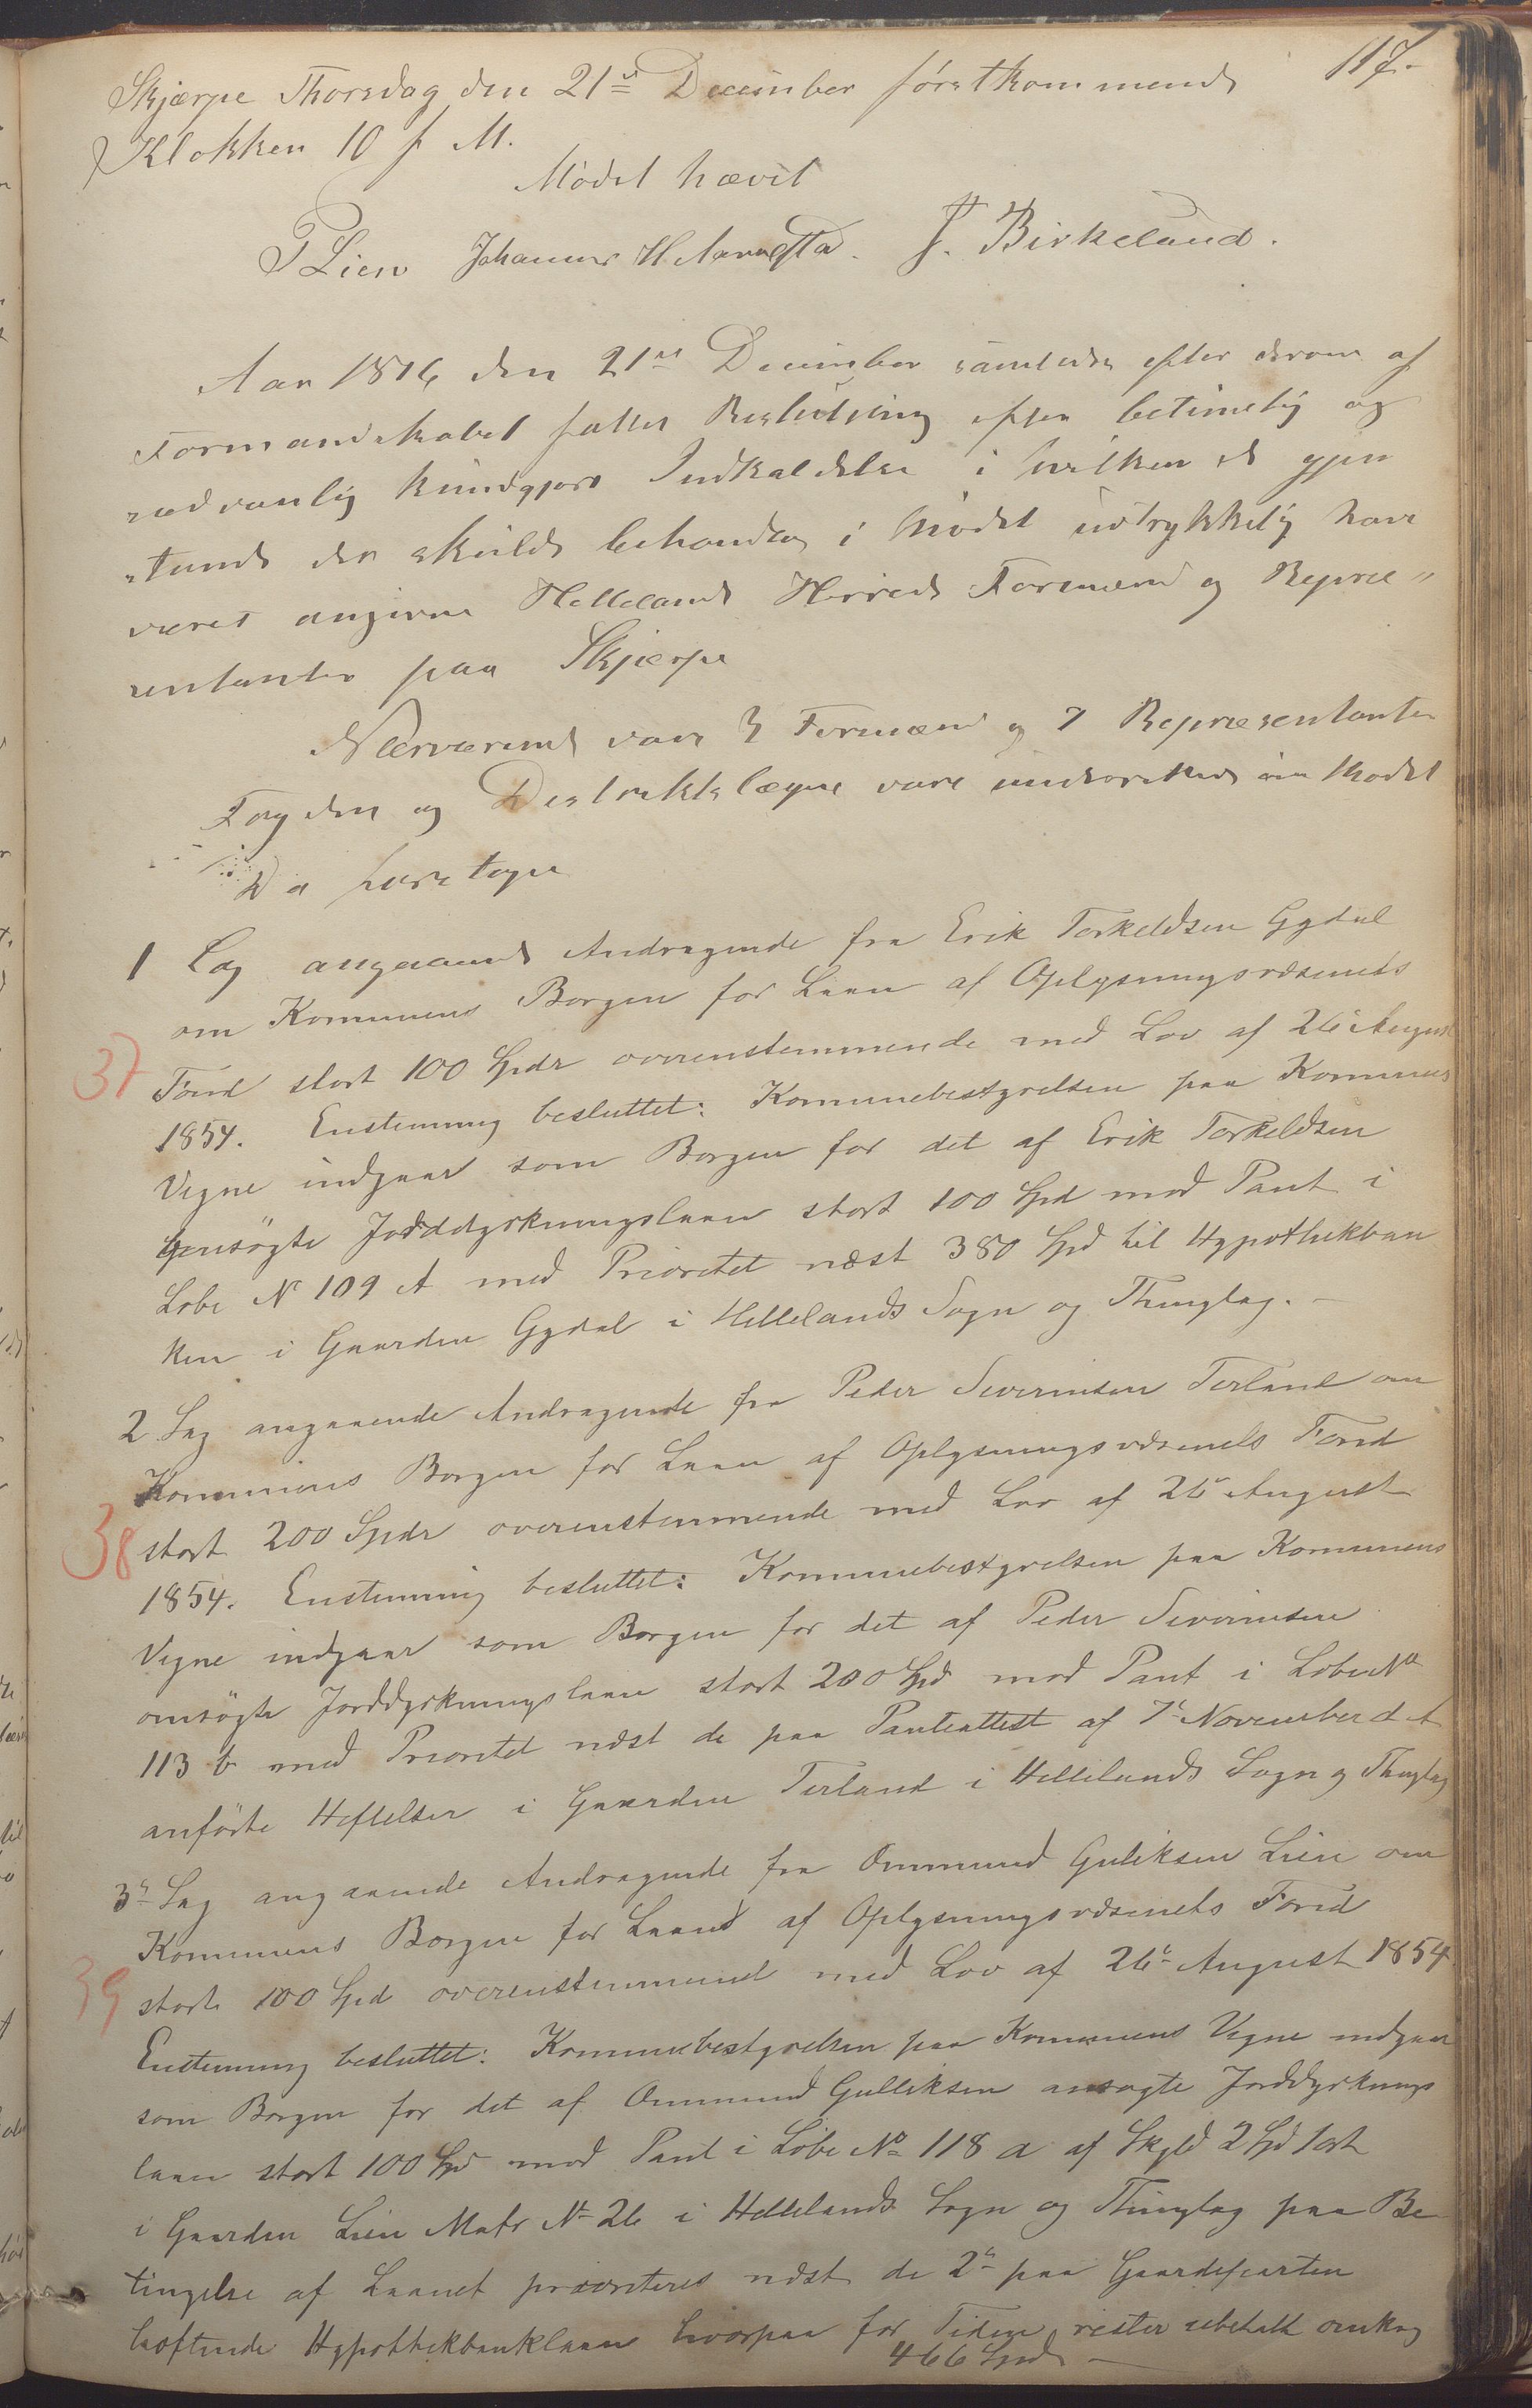 117.
Skjærpe Thorsdag den 21de December førstkommende
Klokken 10 f M.
Mødet hævet
P Lien Johannes H Aarrestad. J. Birkeland.
Aar 1876 den 21de December samledes efter derom af
Formandskabet fattet Beslutning efter betimelig og
sædvanlig kundgjort Indkaldelse i hvilken de gjen
stande der skulde behandles i Mødet udtrykkelig have
været angivne Hellelands Herreds Formænd og Repræ"
sentanter paa Skjærpe
Nærværende vare 3 Formænd og 7 Repræsentanter
Fogden og Destriktslægen vare underrettede om Mødet
Da foretoges
1 Sag angaaende Andragende fra Erik Torkeldsen Gydal
om Kommunens Borgen for Laan af Oplysningsvæsenets
37
Fond stort 100 Spdr overenstemmende med Lov af 26de August
1854. Enstemmig besluttet: Kommunebestyrelsen paa Kommunens
Vegne indgaar som Borgen for det af Erik Torkeldsen
ansøgte Jorddyrkningslaan stort 100 Spd mod Pant i
Løbe No 109 A med Prioritet næst 380 Spd til Hypothekban
ken i Gaarden Gydal i Hellelands Sogn og Thinglag. –
2 Sag angaaende Andragende fra Peder Severinsen Terland om
Kommunens Borgen for Laan af Oplysningsvæsenets Fond
38
stort 200 Spdr overenstemmende med Lov af 26de August
1854. Enstemmig besluttet: Kommunebestyrelsen paa Kommunens
Vegne indgaar som Borgen for det af Peder Severinsen
omsøgte Jorddyrkningslaan stort 200 Spd mod Pant i Løbe No
113 b med Prioritet næst de paa Panteattest af 7de November d A
anførte Heftelser i Gaarden Terland i Hellelands Sogn og Thinglag
3de Sag angaaende Andragende fra Ommund Guliksen Lien om
Kommunens Borgen for Laan af Oplysningsvæsenets Fond
39
stort 100 Spd overenstemmend med Lov af 26de August 1854
Enstemmig besluttet: Kommunebestyrelsen paa Kommunens Vegne indgaar
som Borgen for det af Ommund Gulliksen ansøgte Jorddyrknings
laan stort 100 Spd mod Pant i Løbe No 118 a af Skyld 2 Spd 1 ort
i Gaarden Lien Matr No 26 i Hellelands Sogn og Thinglag paa Be
tingelse af Laanet prioriteres næst de 2de paa Gaardeparten
heftende Hypothekbanklaan hvorpaa for Tiden rester ubetalt omkring
466 Spd –